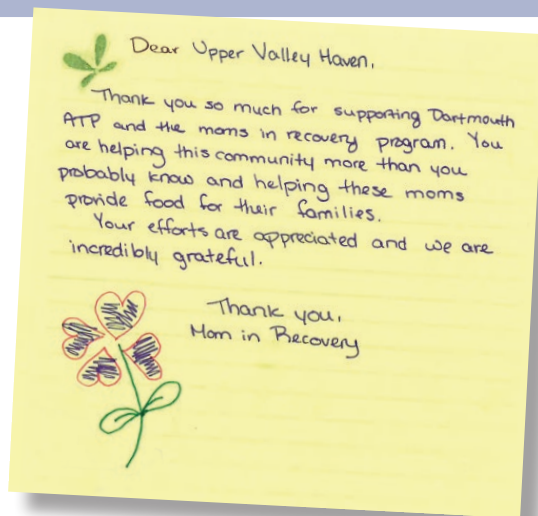 Dear Upper Valley Haven,
Thank you so much for supporting Dartmouth
ATP and the moms in recovery program. You
are helping this community more than you
probably know and helping these moms
provide food for their families.
Your efforts are appreciated and we are
incredibly grateful.
Thank you,
Mom in Recovery